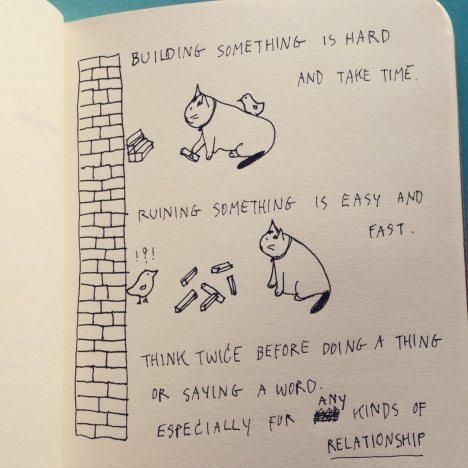 BUILDING SOMETHING IS HARD
AND TAKE TIME.
RUINING SOMETHING IS EASY AND
FAST.
!?!
THINK TWICE BEFORE DOING A THING
OR SAYING A WORD.
ESPECIALLY FOR ANY KINDS OF
RELATIONSHIP